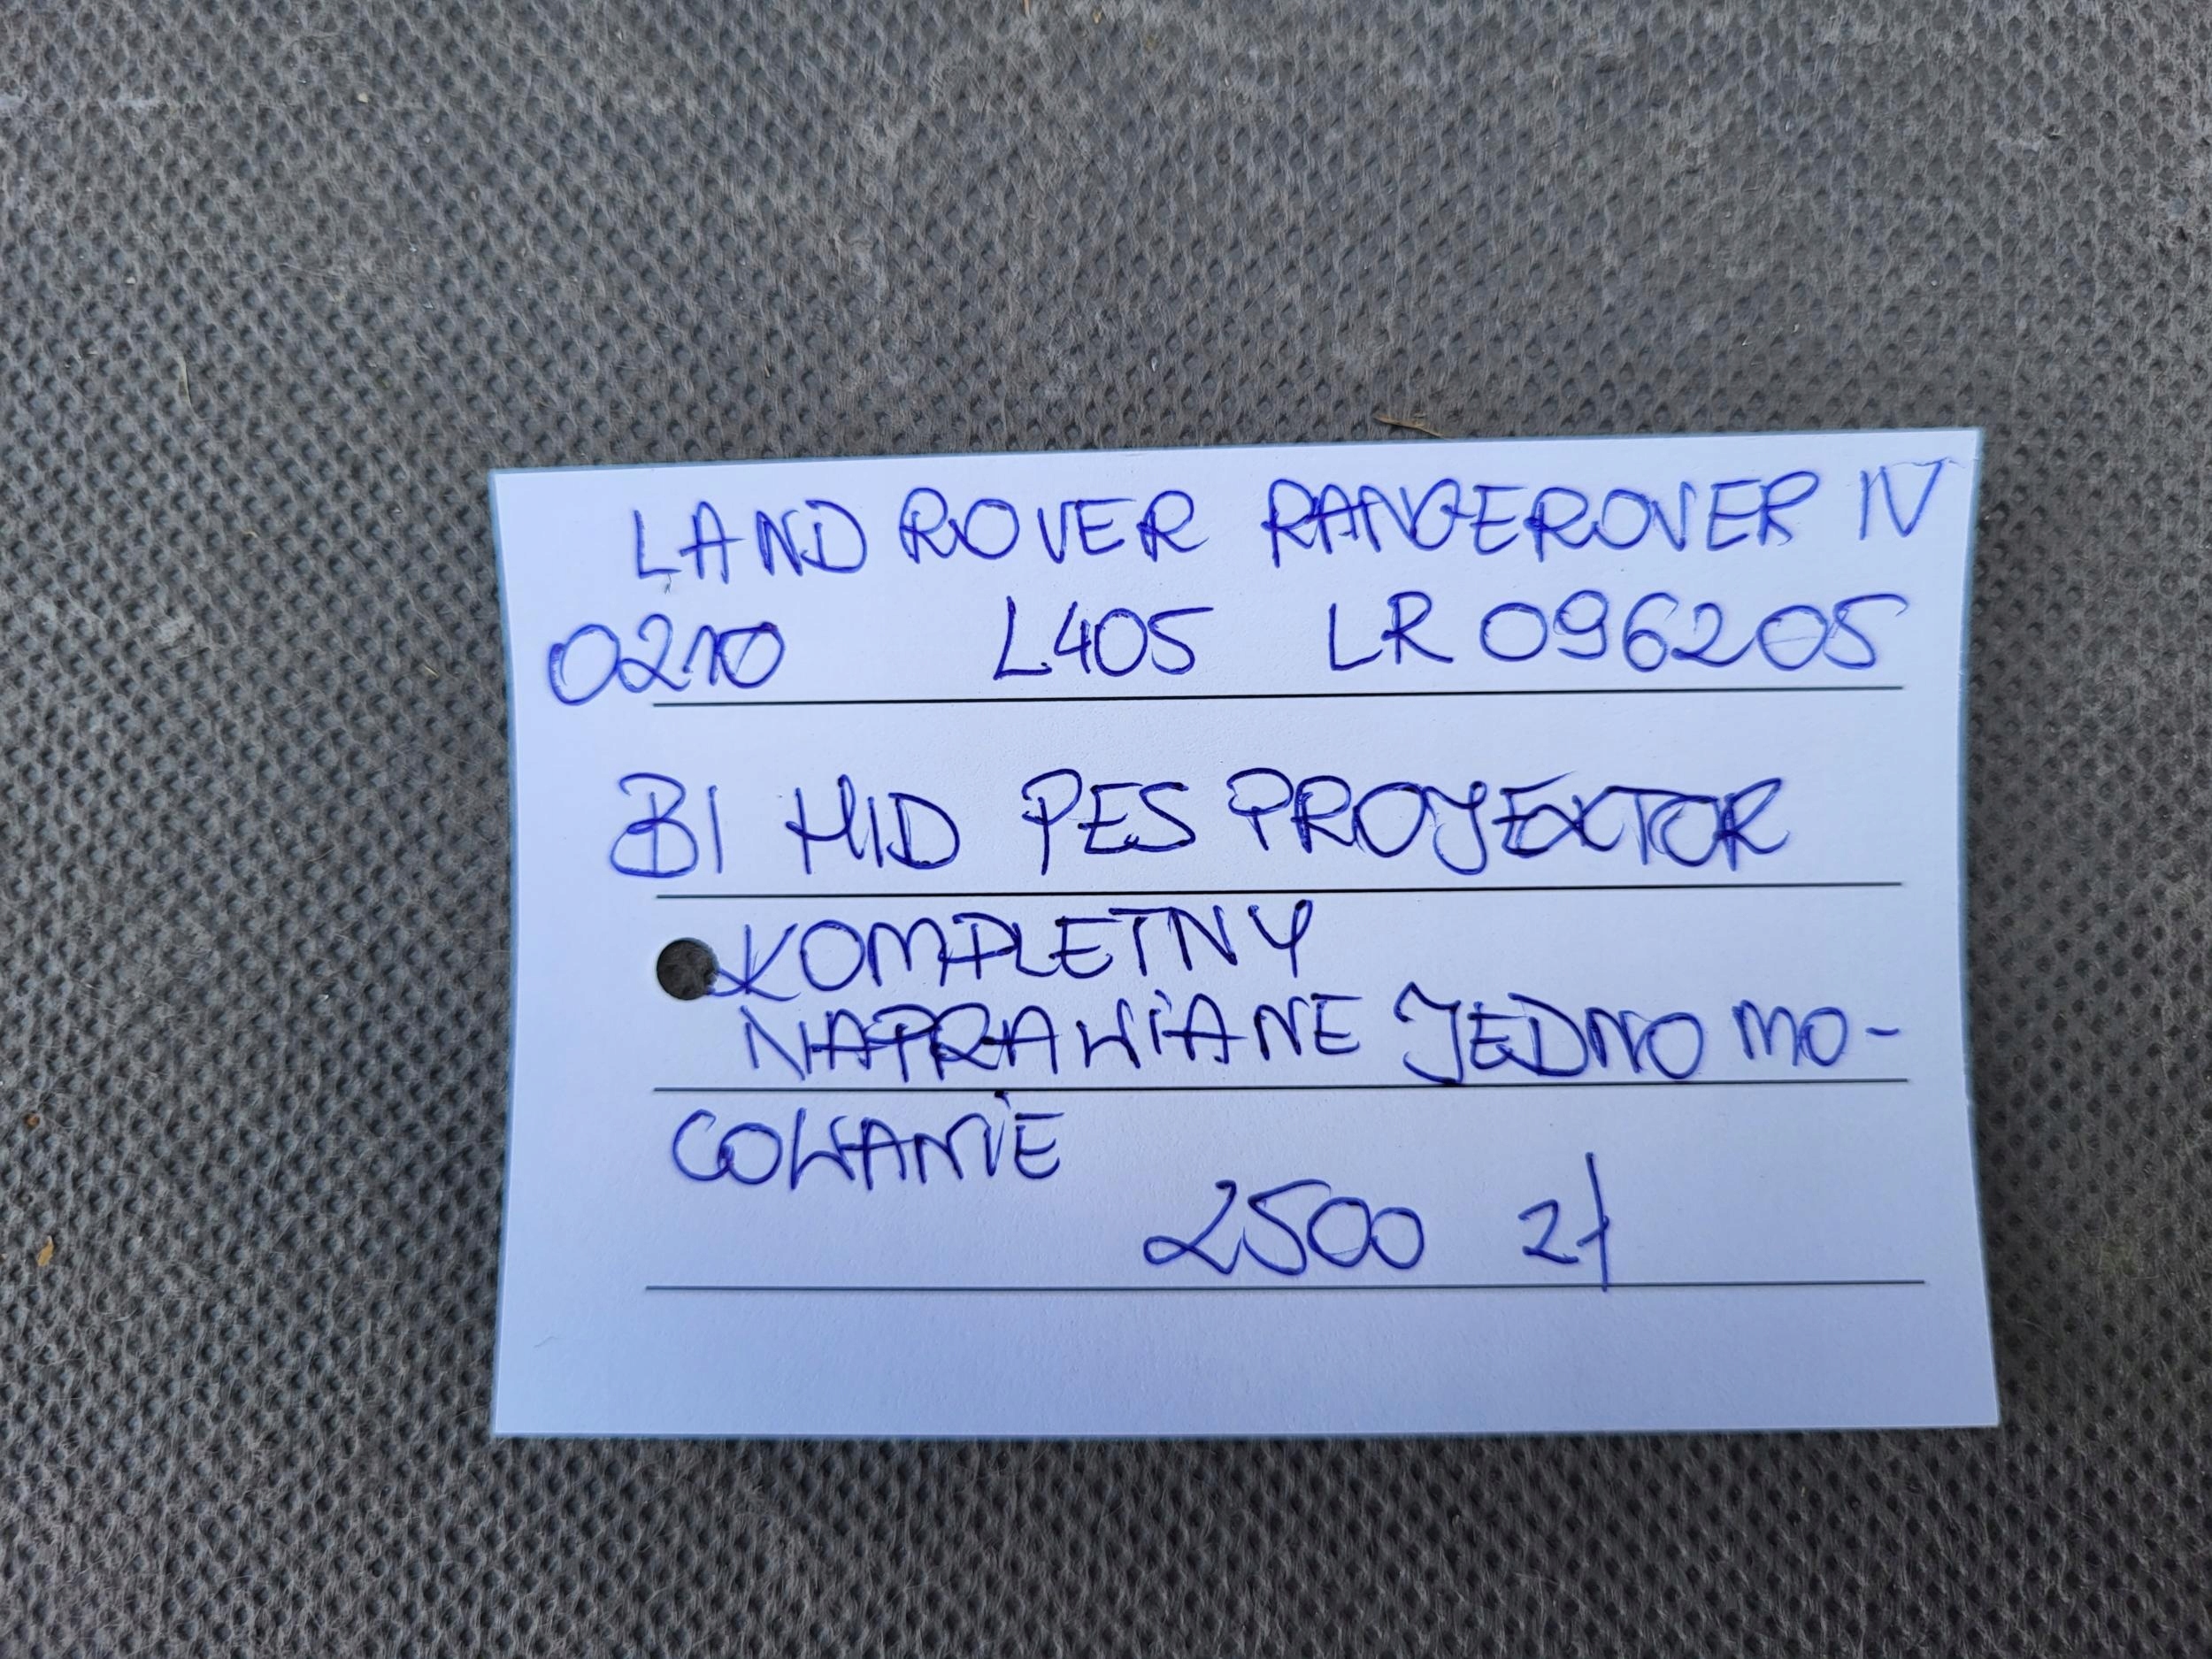 LAND ROVER RANGEROVER IV
0210 L405 LR096205
BI HID PES PROYEKTOR
KOMPLETNY
NAPRAWIANE JEDNO MO-
COWANIE
2500 zł